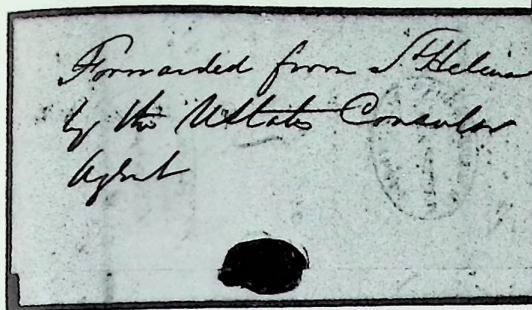 Forwarded from St Helena
by the UStates Consular
Agent